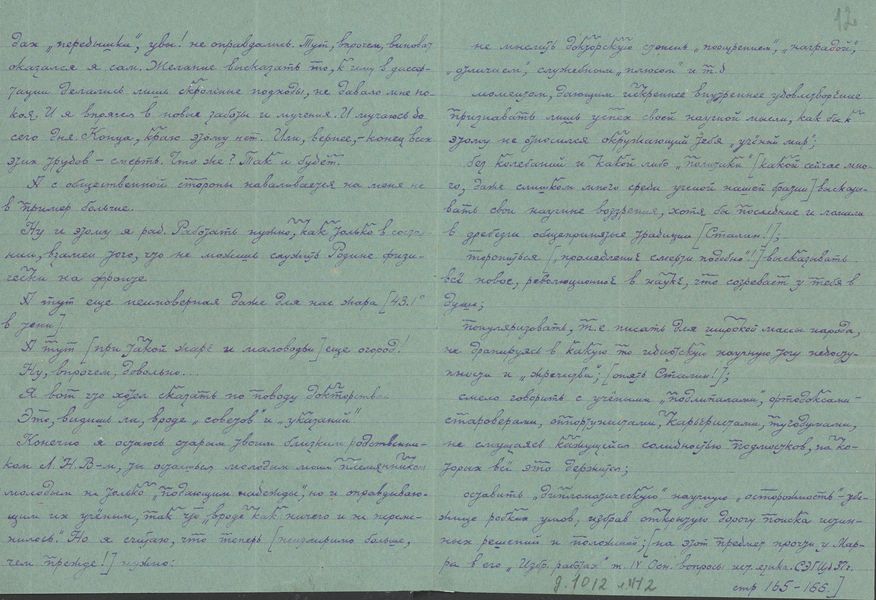 дах „передышки“, увы! не оправдались. Тут, впрочем, виноват
оказался я сам. Желание высказать то, к чему в диссер-
тации делались лишь скромные подходы, не давало мне по-
коя. И я впрягся в новые заботы и мучения. И мучаюсь до
сего дня. Конца, краю этому нет. Или, вернее, – конец всех
этих трудов – смерть. Что же? Так и будет.
А с общественной стороны наваливается на меня не
в пример больше.
Ну и этому я рад. Работать нужно, как только в созна-
нии, взамен того, что не можешь служить Родине физи-
чески на фронте
А тут еще неимоверная даже для нас жара [43.1°
в тени]
А тут [при такой жаре и маловодьи] еще огород!
Ну, впрочем, довольно...
Я вот что хотел сказать по поводу докторства
Это, видишь ли, вроде „советов“ и „указаний“
Конечно я остаюсь старым твоим близким родственни-
ком Л. Н. В-м, ты остаешься молодым моим племянником
молодым не только „подающим надежды“, но и оправдываю-
щим их учёным, так что „вроде как ничего и не переме-
нилось“. Но я считаю, что теперь [неизмеримо больше,
чем прежде!] нужно:
12.
не мыслить докторскую степень „поощрением“, „наградой“,
„отличием“, служебным „плюсом“ и т.д
моментом, дающим искреннее внутреннее удовлетворение
признавать лишь успех своей научной мысли, как бы к
этому не относился окружающий тебя „учёный мир“;
без колебаний и какой либо „политики“ [какой сейчас мно-
го, даже слишком много среди ученой нашей братии] высказы-
вать свои научные воззрения, хотя бы последние и ломали
в дребезги общепринятые традиции [Сталин!];
торопиться [„промедление смерти подобно“!] высказывать
всё новое, революционное в науке, что созревает у тебя в
душе;
популяризовать, т.е. писать для широкой массы народа,
не драпируясь в какую то гибатскую научную тогу недосту-
пности и „жречества“; [опять Сталин!];
смело говорить с учёными „подлипалами“, ортодоксами-
староверами, оппортунистами, карьеристами, тугодумами,
не смущаясь кажущейся солидностью подмостков, на ко-
торых всё это держится;
оставить „дипломатическую“ научную „осторожность“ – убе-
жище робких умов, избрав открытую дорогу поиска истин-
ных решений и положений; [на этот предмет прочти у Мар-
ра в его „Избр. работах“ т. IV Осн. вопросы ист. языка.
стр 165–166.]
д. 1012 л. 12